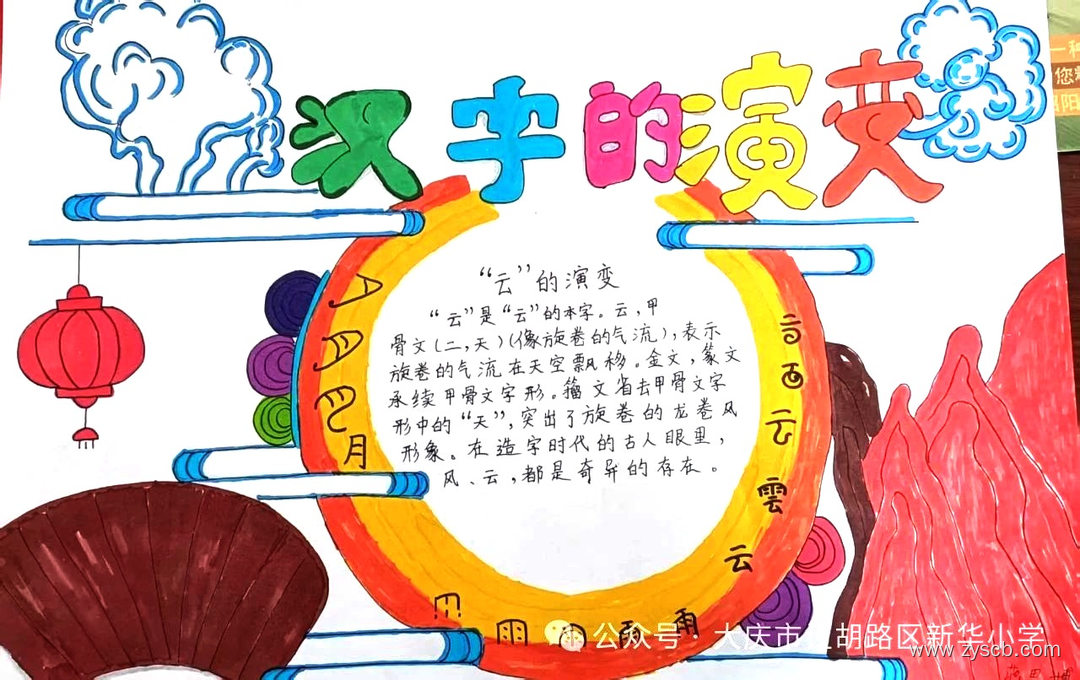 汉字的演变
"云"的演变
"云"是"云"的本字。云，甲
骨文(二，天)(像旋卷的气流)，表示
旋卷的气流在天空飘移。金文，篆文
承续甲骨文字形。籀文省去甲骨文字
形中的"天"，突出了旋卷的龙卷风
形象。在造字时代的古人眼里，
风、云，都是奇异的存在。
月
云
雲
云
雨
雨
公众号·大庆市 胡路区新华小学
www.zyscb.com
一种
您
阳